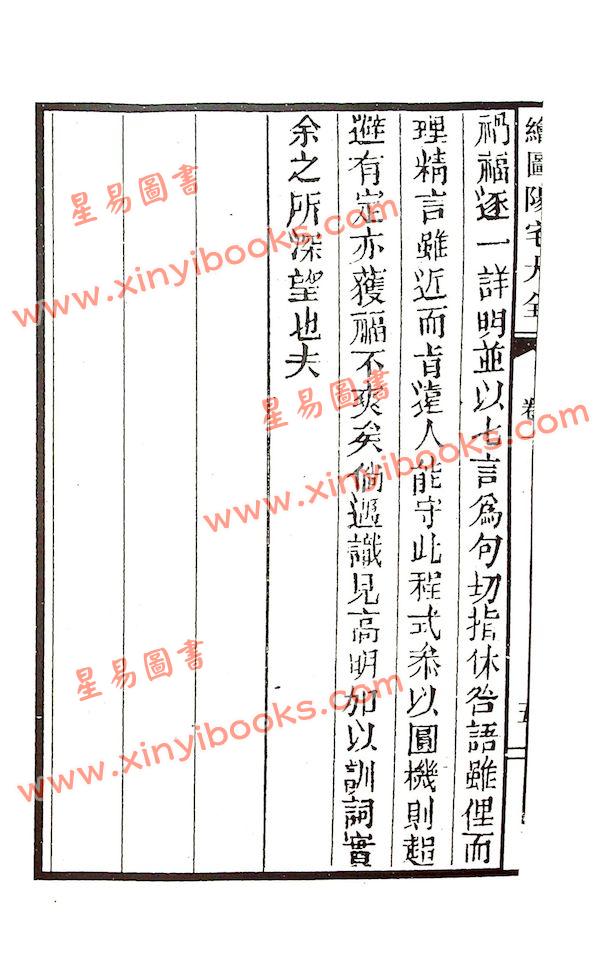 繪圖陽宅大全
卷
五
禍福逐一詳明並以七言爲句切指休咎語雖俚而
理精言雖近而旨遠人能守此程式叅以圓機則趨
避有定亦獲福不爽矣倘遇識見高明加以訓詞實
余之所深望也夫
星易圖書
www.xinyibooks.com
星易圖書
www.xinyibooks.com
星易圖書
www.xinyibooks.com